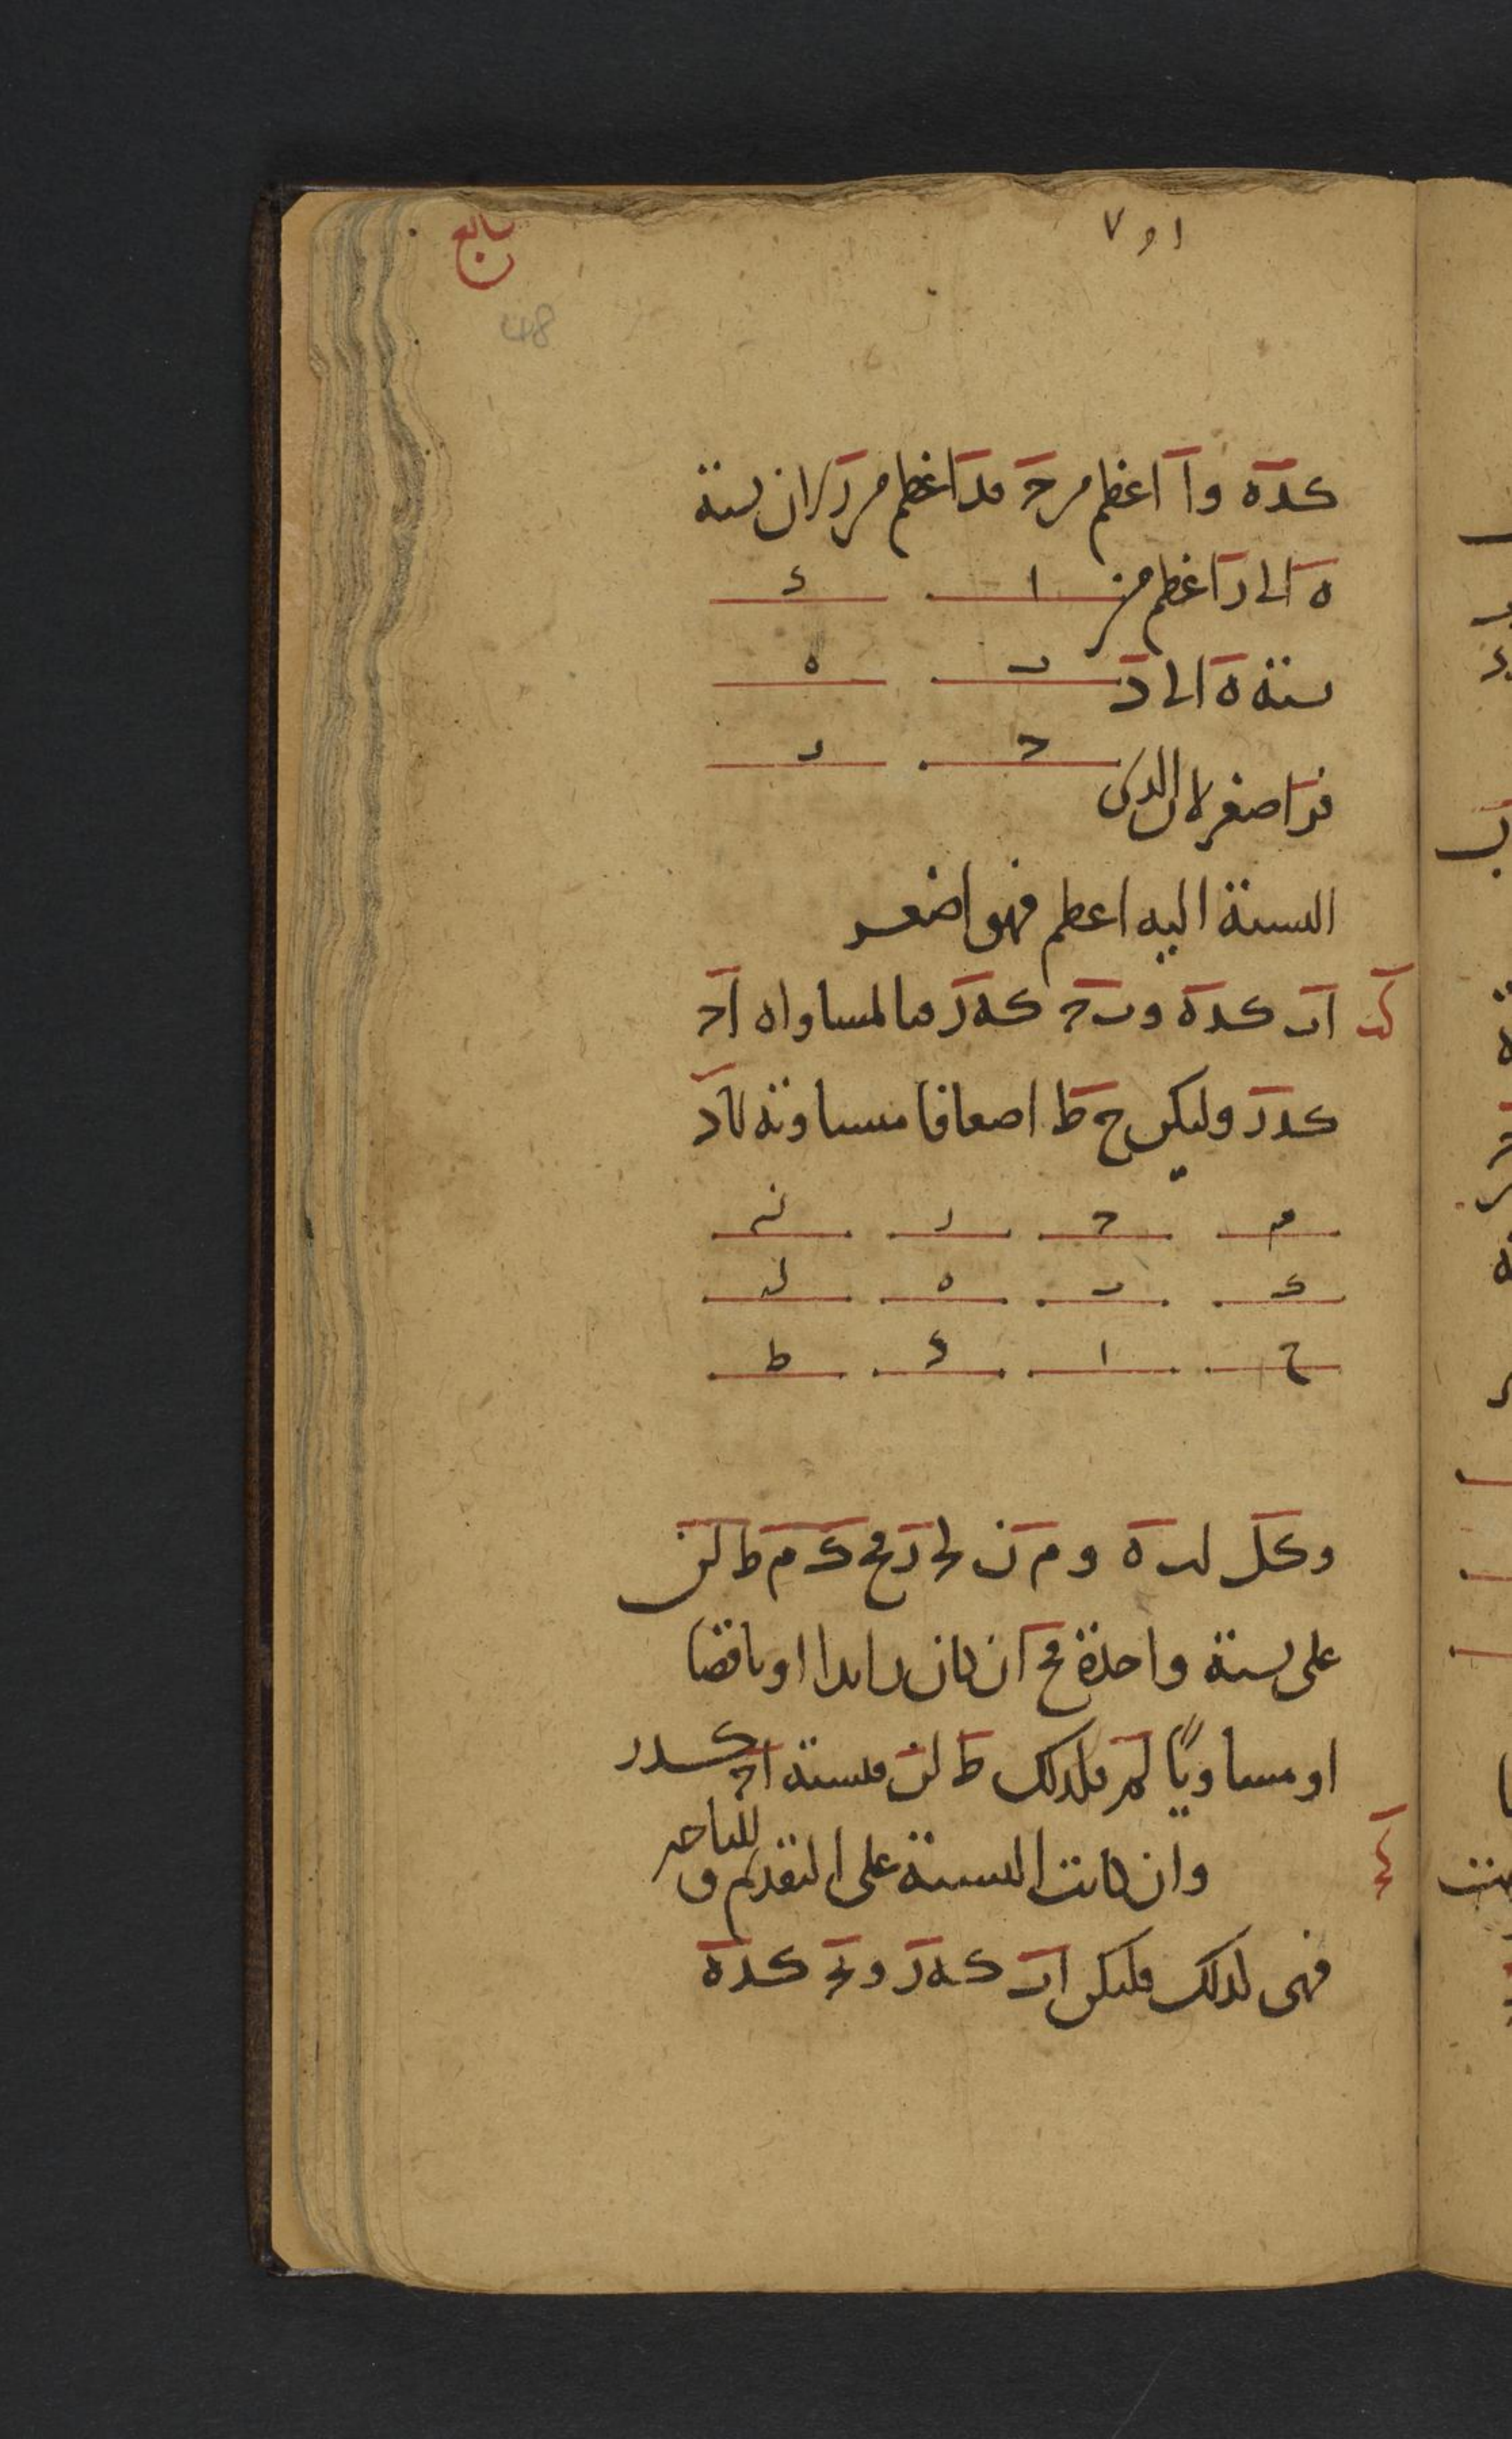 ١و٧
تابع
48
كده وا اعظم من ح فد اعظم من ر لان نسبة
ه الى ر اعظم من
ا د
نسبة ه الى د
ب ه
ح ر
فر اصغر لان الذى
النسبة اليه اعظم فهو اصغر
كب اب كده وبح كهر فبالمساواه اح
كدر وليكن ح ط اضعافا متساوية لاد
م ح ر ن
ك ب ه ل
ح ا د ط
وكل لبه و م ن لحر فح ك م ط لن
على نسبة واحدة فح ان كان زايدا او ناقصا
او مساويا لم فلذلك ط لن فنسبة اح كدر
كج وان كانت النسبة على التقديم و التاخير
فهى كذلك فليكن اب كهر وبح كده